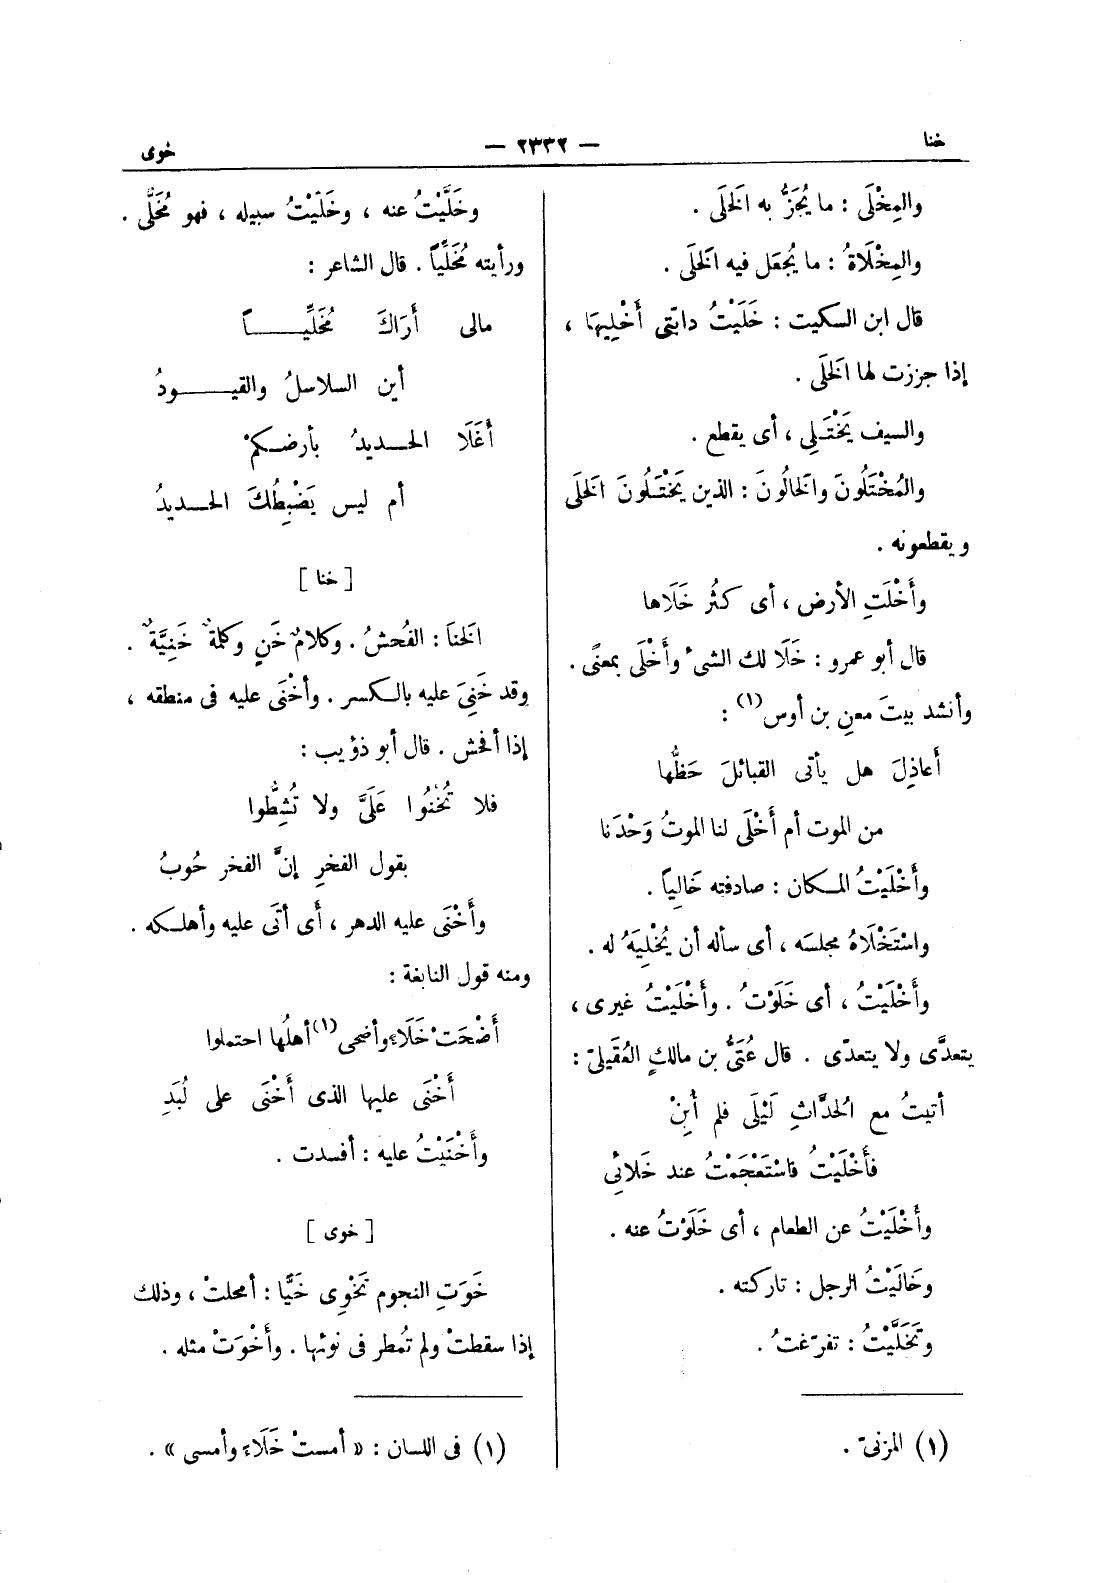 خنا
— ٢٣٣٢ —
خوى
والمِخْلَى : ما يُجَزُّ به الخَلَى .
والمِخْلَاةُ : ما يُجعَل فيه الخَلَى .
قال ابن السكيت : خَلَيْتُ دابّتى أَخْلِيهَا ،
إذا جززت لها الخَلَى .
والسيف يَخْتَلِى ، أى يقطع .
والمُخْتَلُونَ والخَالُونَ : الذين يَخْتَلُونَ الخَلَى
ويقطعونه .
وأَخْلَتِ الأرض ، أى كثُر خَلَاها
قال أبو عمرو : خَلَا لك الشىءُ وأَخْلَى بمعنًى .
وأنشد بيتَ معنِ بن أوس(١) :
أَعاذِلَ هل يأتى القبائلَ حَظُّها
من الموت أم أَخْلَى لنا الموتُ وَحْدَنا
وأَخْلَيْتُ المكان : صادفته خَالِياً .
واسْتَخْلَاهُ مجلسَه ، أى سأله أن يُخْلِيَهُ له .
وأَخْلَيْتُ ، أى خَلَوْتُ . وأَخْلَيْتُ غيرى ،
يتعدَّى ولا يتعدّى . قال عُتَىُّ بن مالكٍ العُقَيلىّ :
أتيتُ مع الحُدَّاثِ لَيْلَى فلم أُبِنْ
فأَخْلَيْتُ فاسْتَعْجَمْتُ عند خَلائِى
وأَخْلَيْتُ عن الطعام ، أى خَلَوْتُ عنه .
وخَالَيْتُ الرجل : تاركته .
وتَخَلَّيْتُ : تفرّغتُ .
(١) المزنىّ .
وخَلَّيْتُ عنه ، وخَلَّيْتُ سبيله ، فهو مُخَلًّى .
ورأيته مُخَلِّياً . قال الشاعر :
مالى أَرَاكَ مُخَلِّيــاً
أين السلاسلُ والقيــودُ
أَغَلَا الحــديدُ بأرضــكمْ
أم ليس يَضْبِطُكَ الحــديدُ
[ خنا ]
الخَنا : الفُحشُ . وكلامٌ خَنٍ وكلمةٌ خَنِيَّةٌ .
وقد خَنِىَ عليه بالكسر . وأخْنَى عليه فى منطقه ،
إذا أفحش . قال أبو ذؤيب :
فلا تُخْنُوا عَلَىَّ ولا تُشِطُّوا
بقول الفخرِ إنَّ الفخر حُوبُ
وأَخْنَى عليه الدهر ، أَى أتَى عليه وأهلكه .
ومنه قول النابغة :
أَضْحَتْ خَلَاءً وأضحى(١) أهلُها احتملوا
أَخْنَى عليها الذى أَخْنَى على لُبَدِ
وأَخْنَيْتُ عليه : أفسدت .
[ خوى ]
خَوَتِ النجوم تَخْوِى خَيًّا : أمحلتْ ، وذلك
إذا سقطتْ ولم تُمطر فى نوئها . وأَخْوَتْ مثله .
(١) فى اللسان : « أمستْ خَلَاءً وأمسى » .